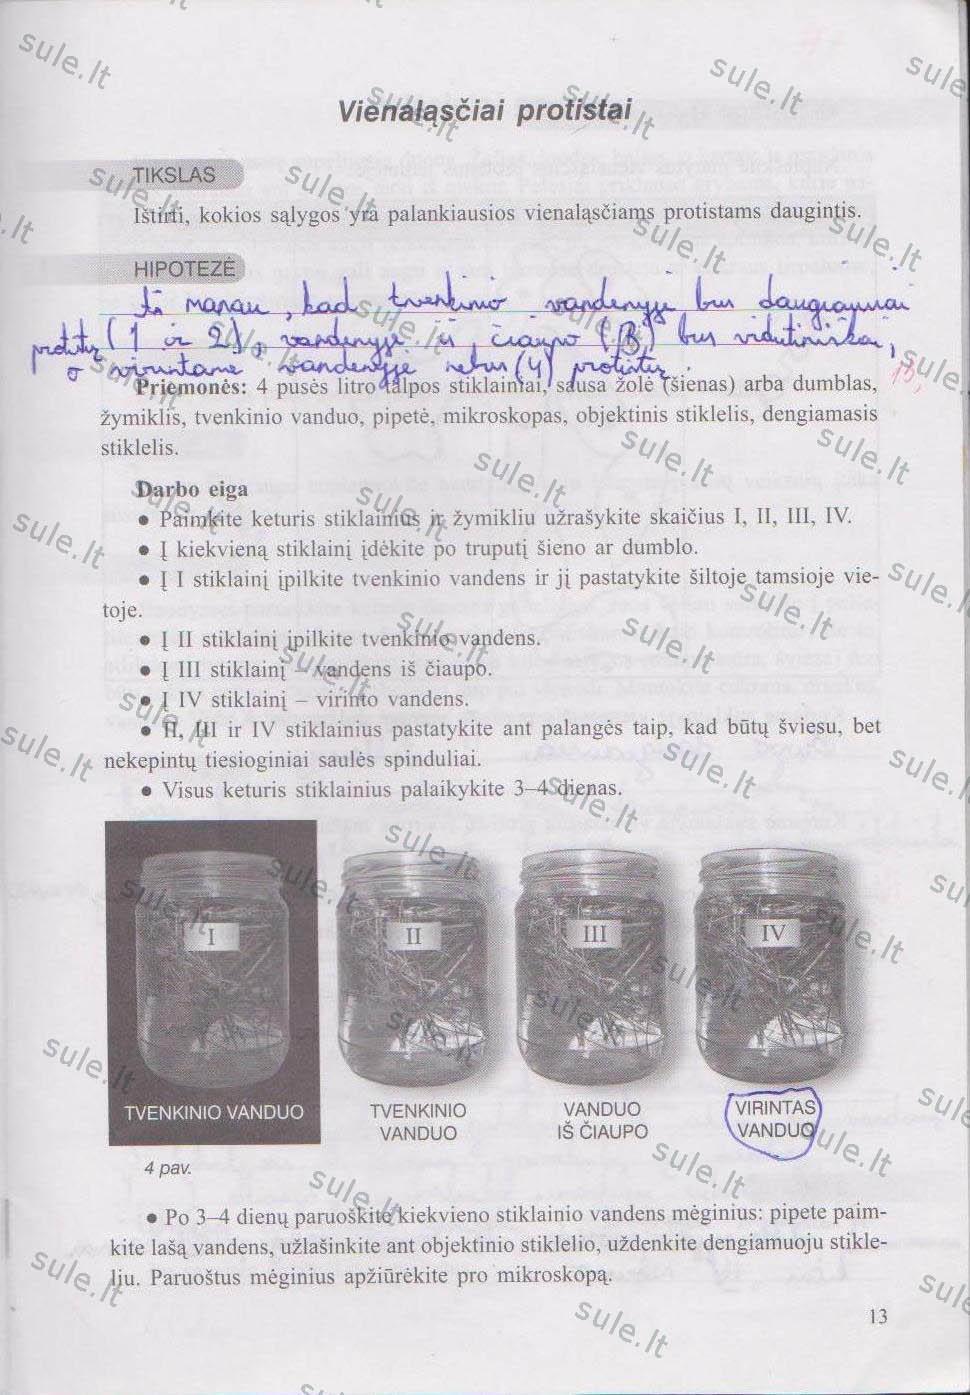 Vienaląsčiai protistai
TIKSLAS
Ištirti, kokios sąlygos yra palankiausios vienaląsčiams protistams daugintis.
HIPOTEZĖ
manau, kad tvenkinio vandenyje bus daugiausiai
protistų (1 ir 2), vandenyje iš čiaupo (3) bus vidutiniškai,
o virintame vandenyje nebus (4) protistų.
Priemonės: 4 pusės litro talpos stiklainiai, sausa žolė (šienas) arba dumblas,
žymiklis, tvenkinio vanduo, pipetė, mikroskopas, objektinis stiklelis, dengiamasis
stiklelis.
Darbo eiga
● Paimkite keturis stiklainius ir žymikliu užrašykite skaičius I, II, III, IV.
● Į kiekvieną stiklainį įdėkite po truputį šieno ar dumblo.
● Į I stiklainį įpilkite tvenkinio vandens ir jį pastatykite šiltoje tamsioje vie-
toje.
● Į II stiklainį įpilkite tvenkinio vandens.
● Į III stiklainį – vandens iš čiaupo.
● Į IV stiklainį – virinto vandens.
● II, III ir IV stiklainius pastatykite ant palangės taip, kad būtų šviesu, bet
nekepintų tiesioginiai saulės spinduliai.
● Visus keturis stiklainius palaikykite 3–4 dienas.
I II III IV
TVENKINIO VANDUO
TVENKINIO
VANDUO
VANDUO
IŠ ČIAUPO
VIRINTAS
VANDUO
4 pav.
● Po 3–4 dienų paruoškite kiekvieno stiklainio vandens mėginius: pipete paim-
kite lašą vandens, užlašinkite ant objektinio stiklelio, uždenkite dengiamuoju stikle-
liu. Paruoštus mėginius apžiūrėkite pro mikroskopą.
13
sule.lt